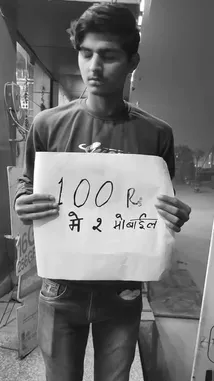 100 Rs
मे २ मोबाईल